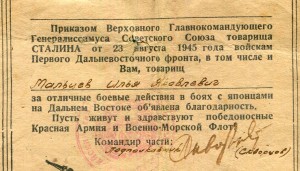 Приказом Верховного Главнокомандующего
Генералиссимуса Советского Союза товарища
СТАЛИНА от 23 августа 1945 года войскам
Первого Дальневосточного фронта, в том числе и
Вам, товарищ
Мальцев Илья Яковлевич
за отличные боевые действия в боях с японцами
на Дальнем Востоке об'явлена благодарность.
Пусть живут и здравствуют победоносные
Красная Армия и Военно-Морской Флот!
Командир части:
подполковник